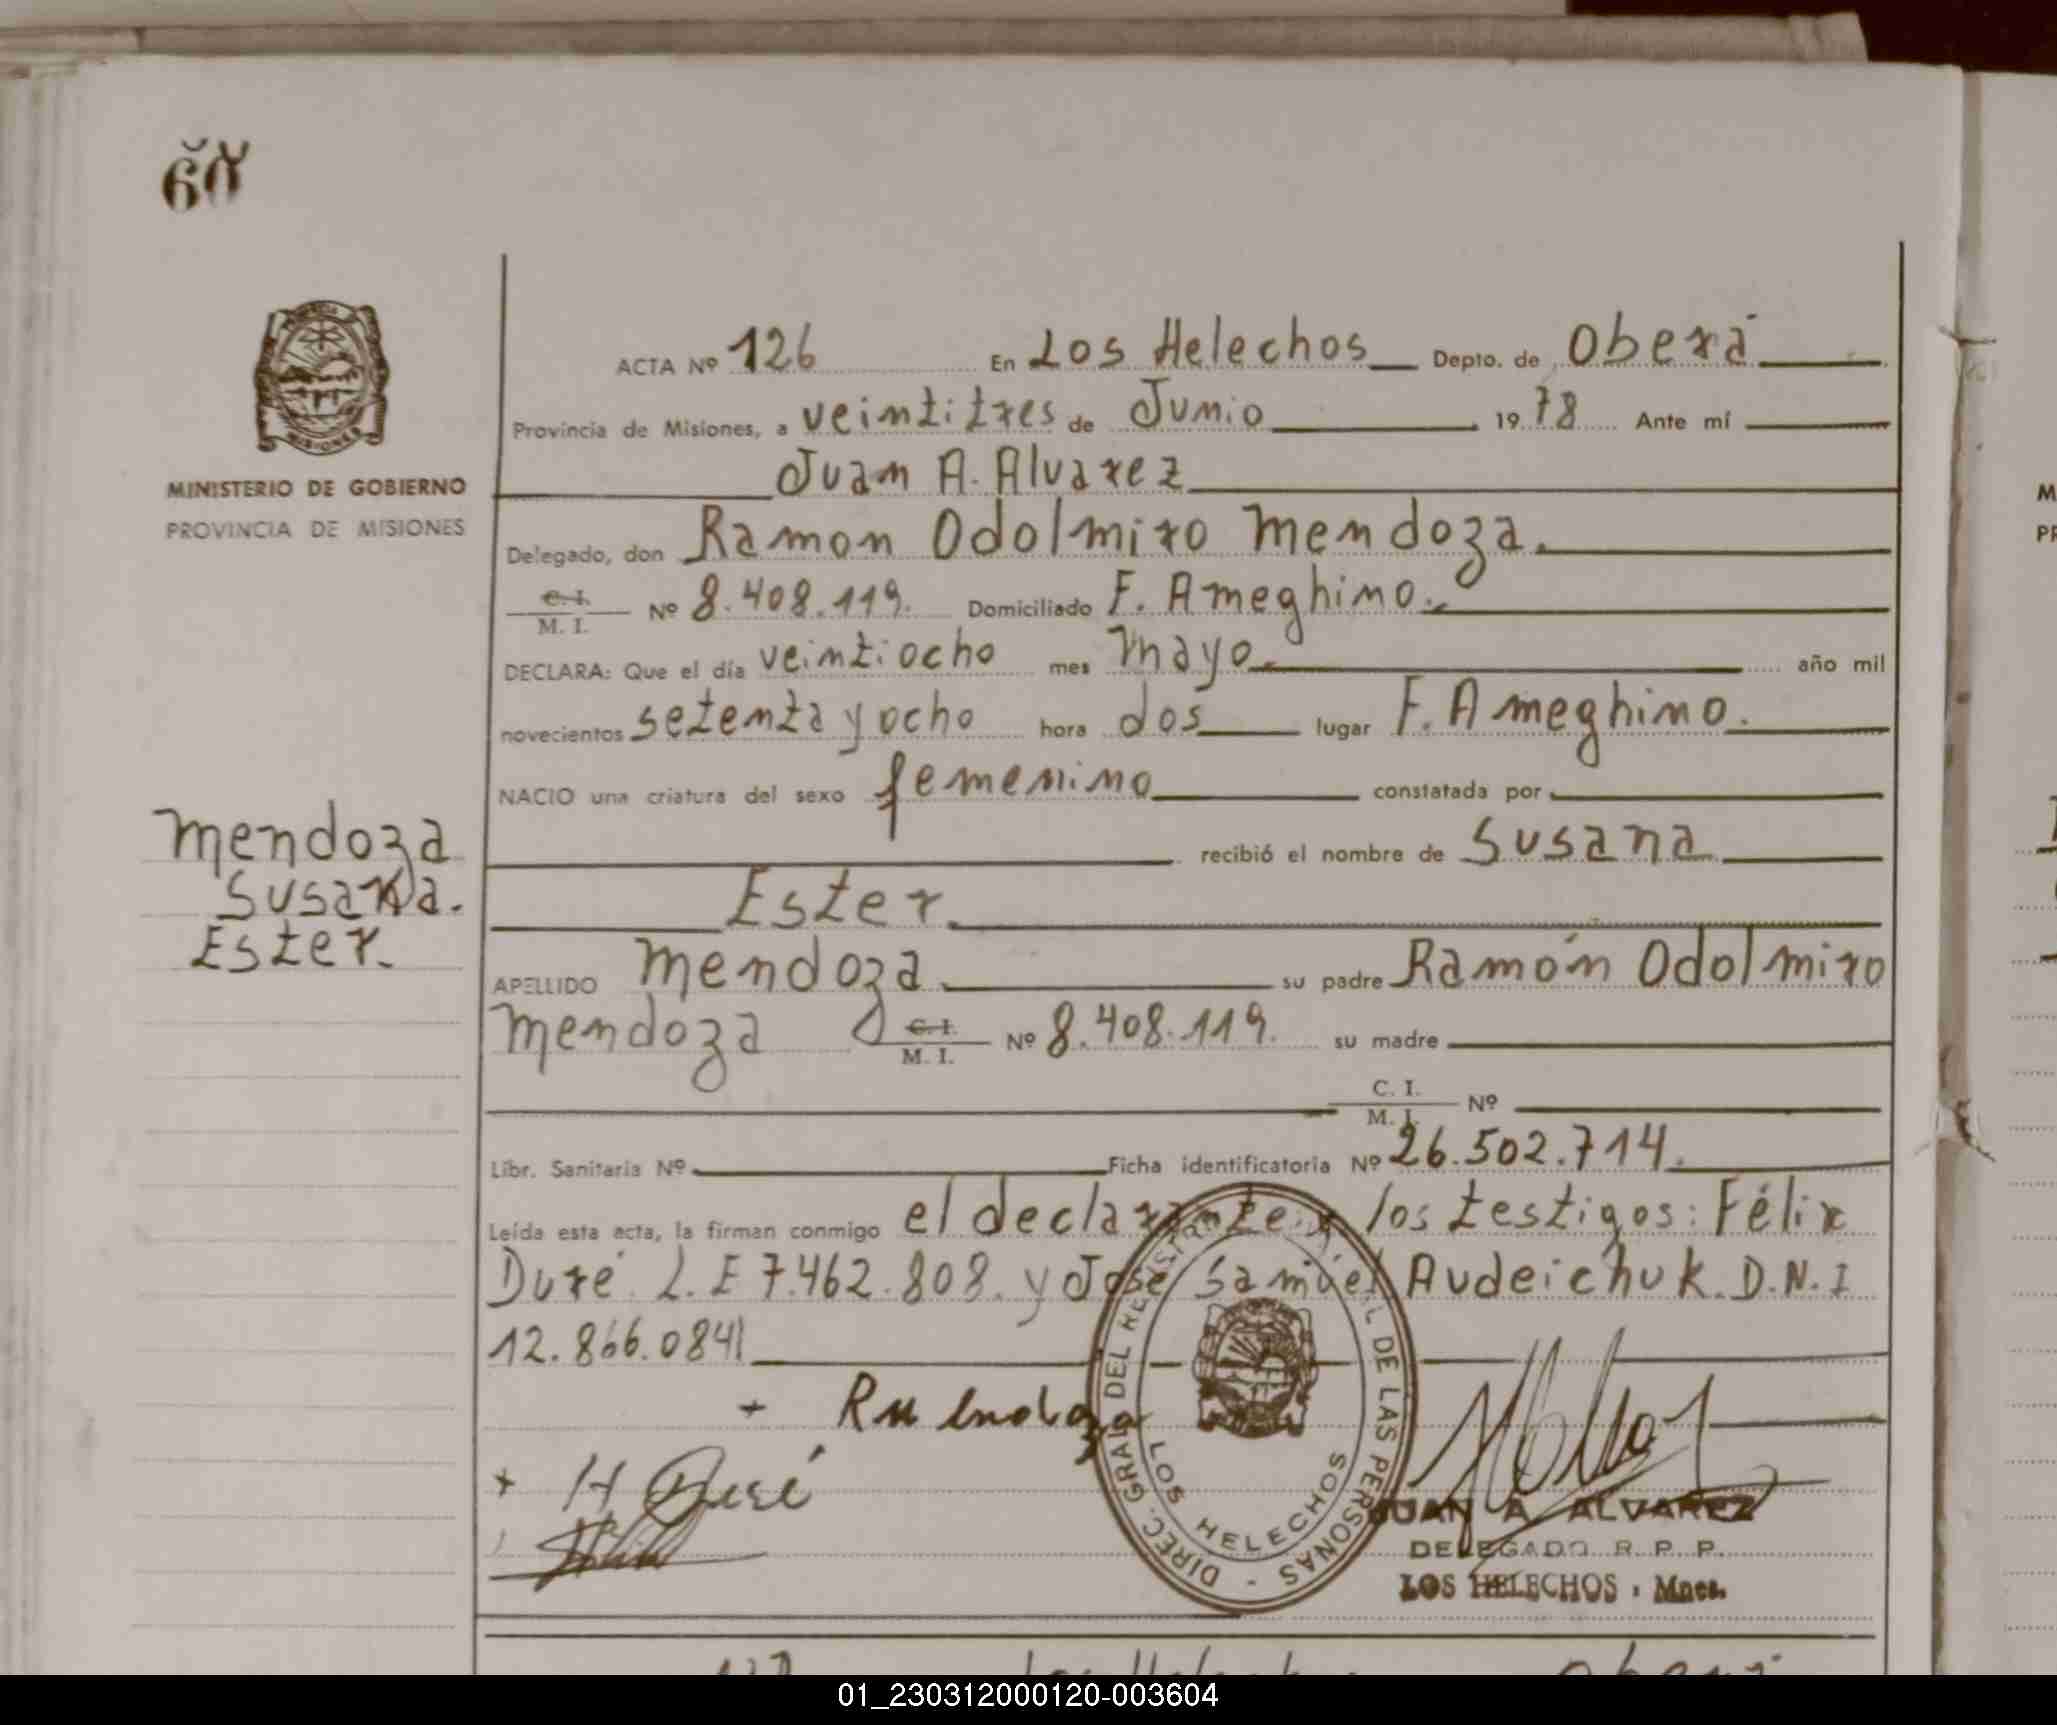 ACTA Nº 126 En Los Helechos Depto. de Oberá
Provincia de Misiones, a veintitres de Junio 19 78 Ante mí
Juan A. Alvarez
MINISTERIO DE GOBIERNO
PROVINCIA DE MISIONES
Delegado, don Ramon Odolmiro Mendoza.
C. I. / M. I. Nº 8.408.119. Domiciliado F. Ameghino.
DECLARA: Que el día veintiocho mes Mayo año mil
novecientos setenta y ocho hora dos lugar F. Ameghino.
NACIO una criatura del sexo femenino constatada por
recibió el nombre de Susana
Ester.
Mendoza
Susana.
Ester.
APELLIDO Mendoza su padre Ramón Odolmiro
Mendoza C. I. / M. I. Nº 8.408.119. su madre
C. I. / M. I. Nº
Libr. Sanitaria Nº Ficha identificatoria Nº 26.502.714.
Leída esta acta, la firman conmigo el declarante y los testigos: Félix
Duré L.E 7.462.808. y José Samuel Audeichuk. D.N.I
12.866.084
DIREC. GRAL DEL DE LAS PERSONAS -
LOS HELECHOS
JUAN A. ALVAREZ
DELEGADO R. P. P.
LOS HELECHOS - Mnes.
01_230312000120-003604